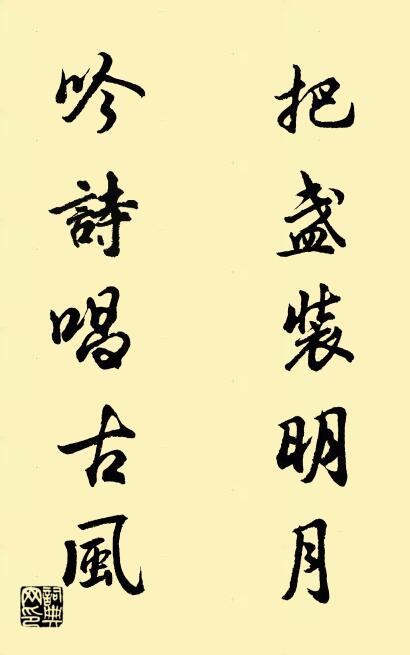 把盞裝明月
吟詩唱古風
詞典網印